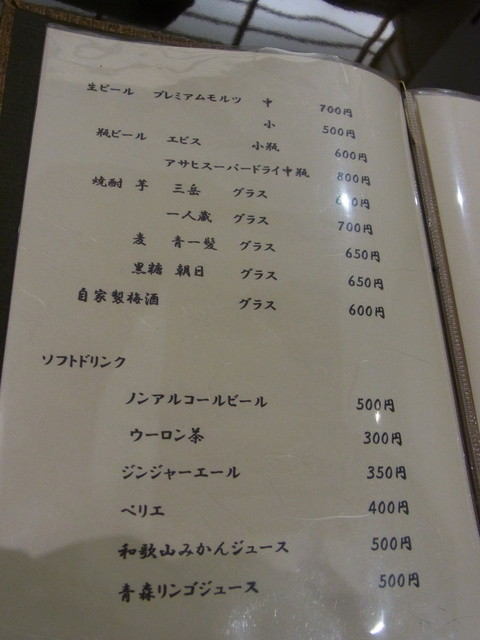 生ビール プレミアムモルツ 中 700円
小 500円
瓶ビール エビス 小瓶 600円
アサヒスーパードライ中瓶 800円
焼酎 芋 三岳 グラス
一人蔵 グラス 700円
麦 青一髪 グラス 650円
黒糖 朝日 グラス 650円
自家製梅酒 グラス 600円
ソフトドリンク
ノンアルコールビール 500円
ウーロン茶 300円
ジンジャーエール 350円
ペリエ 400円
和歌山みかんジュース 500円
青森リンゴジュース 500円